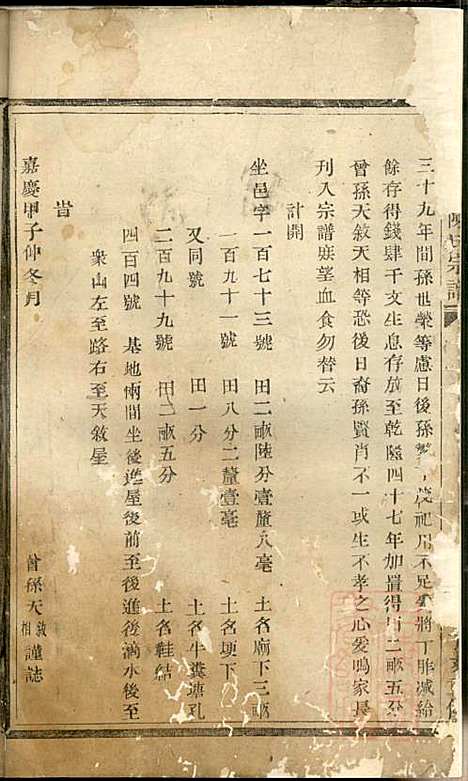 陳氏宗譜
三十九年間孫世榮等慮日後孫繁 祀用不足 將丁胙減給
餘存得錢肆千文生息存放至乾隆四十七年加置得 二畝五分
曾孫天敘天相等恐後日裔孫賢肖不一或生不孝之心爰鳴家長
刊入宗譜庶望血食勿替云
計開
坐邑字一百七十三號 田二畝陸分壹釐八毫 土名廟下二畝
一百九十一號 田八分二釐壹毫 土名埂下
又同號 田一分 土名牛糞塘孔
二百九十九號 田二畝五分 土名鞋結
四百四號 基地兩間坐後進屋後前至後進後滴水後至
衆山左至路右至天敘屋
旹
嘉慶甲子仲冬月 曾孫天敘相謹誌